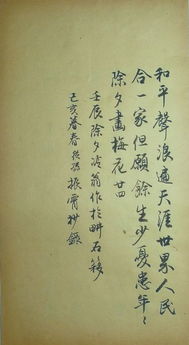 和平聲浪遍天涯世界人民
合一家但願餘生少憂患年〻
除夕畫梅花廿四
壬辰除夕冷翁作於畊石簃
己亥暮春後學振霄抄錄